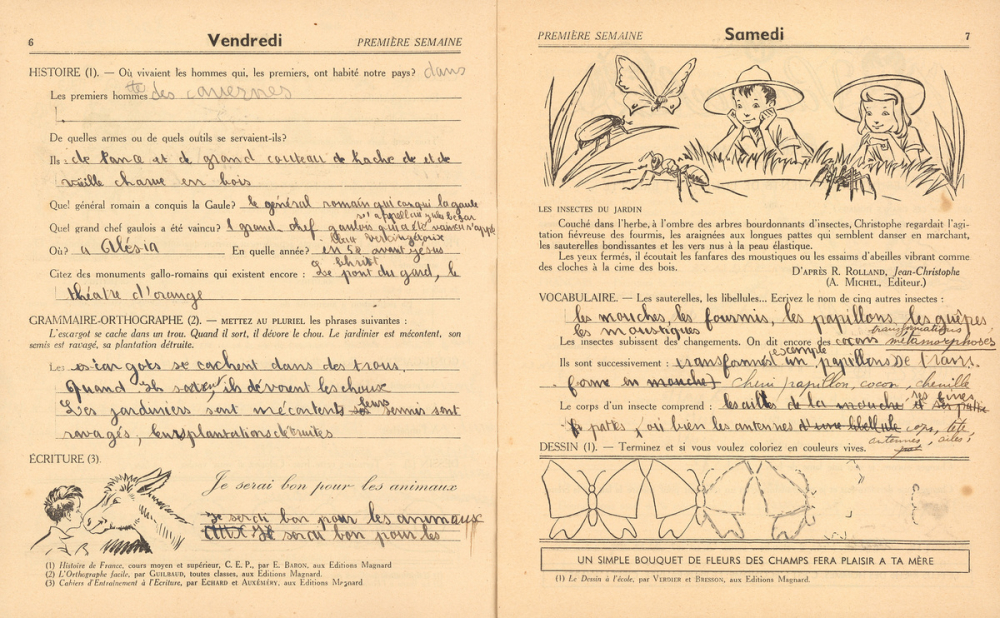 6 Vendredi PREMIÈRE SEMAINE
HISTOIRE (1). — Où vivaient les hommes qui, les premiers, ont habité notre pays? dans
Les premiers hommes des cavernes
De quelles armes ou de quels outils se servaient-ils?
Ils : de lance et de grand couteau de hache de et de
vieille charue en bois
Quel général romain a conquis la Gaule? le général romain qui conqui la gaule
s'appell
Quel grand chef gaulois a été vaincu? 1 grand chef gaulois qui a été vaincu s'appe
Où? a Alésia En quelle année? en 52 avant jésus
christ
Citez des monuments gallo-romains qui existent encore : Le pont du gard, le
théatre d'orange
GRAMMAIRE-ORTHOGRAPHE (2). — METTEZ AU PLURIEL les phrases suivantes :
L'escargot se cache dans un trou. Quand il sort, il dévore le chou. Le jardinier est mécontent, son
semis est ravagé, sa plantation détruite.
Les escargots se cachent dans des trous,
Quand ils sortent, ils dévorent les choux
Les jardiniers sont mécontents leurs semis sont
ravagés, leurs plantations détruites
ÉCRITURE (3).
Je serai bon pour les animaux
Je serai bon pour les animaux
Je serai bon pour les
(1) Histoire de France, cours moyen et supérieur, C. E. P., par E. BARON, aux Editions Magnard
(2) L'Orthographe facile, par GUILBAUD, toutes classes, aux Editions Magnard.
(3) Cahiers d'Entraînement à l'Ecriture, par ECHARD et AUXÉMÉRY, aux Editions Magnard
PREMIÈRE SEMAINE Samedi 7
LES INSECTES DU JARDIN
Couché dans l'herbe, à l'ombre des arbres bourdonnants d'insectes, Christophe regardait l'agi-
tation fiévreuse des fourmis, les araignées aux longues pattes qui semblent danser en marchant,
les sauterelles bondissantes et les vers nus à la peau élastique.
Les yeux fermés, il écoutait les fanfares des moustiques ou les essaims d'abeilles vibrant comme
des cloches à la cime des bois.
D'APRÈS R. ROLLAND, Jean-Christophe
(A. MICHEL, Editeur.)
VOCABULAIRE. — Les sauterelles, les libellules... Ecrivez le nom de cinq autres insectes :
les mouches, les fourmis, les papillons, les guêpes
les moustiques
transformations
Les insectes subissent des changements. On dit encore des cocons métamorphoses
exemple
Ils sont successivement : transformés un papillons se trans
forme en mouche) papillon, cocon, chenille
Le corps d'un insecte comprend : les ailes de la mouche et
pates, ou bien les antennes cops, tête,
antennes, ailes
DESSIN (1). — Terminez et si vous voulez coloriez en couleurs vives.
UN SIMPLE BOUQUET DE FLEURS DES CHAMPS FERA PLAISIR A TA MÈRE
(1) Le Dessin à l'école, par VERDIER et BRESSON, aux Editions Magnard.